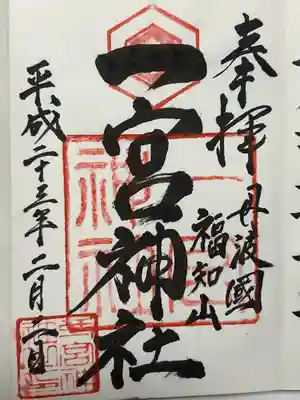 奉拝
丹波國
福知山
一宮神社
平成二十三年二月二日
一宮神社